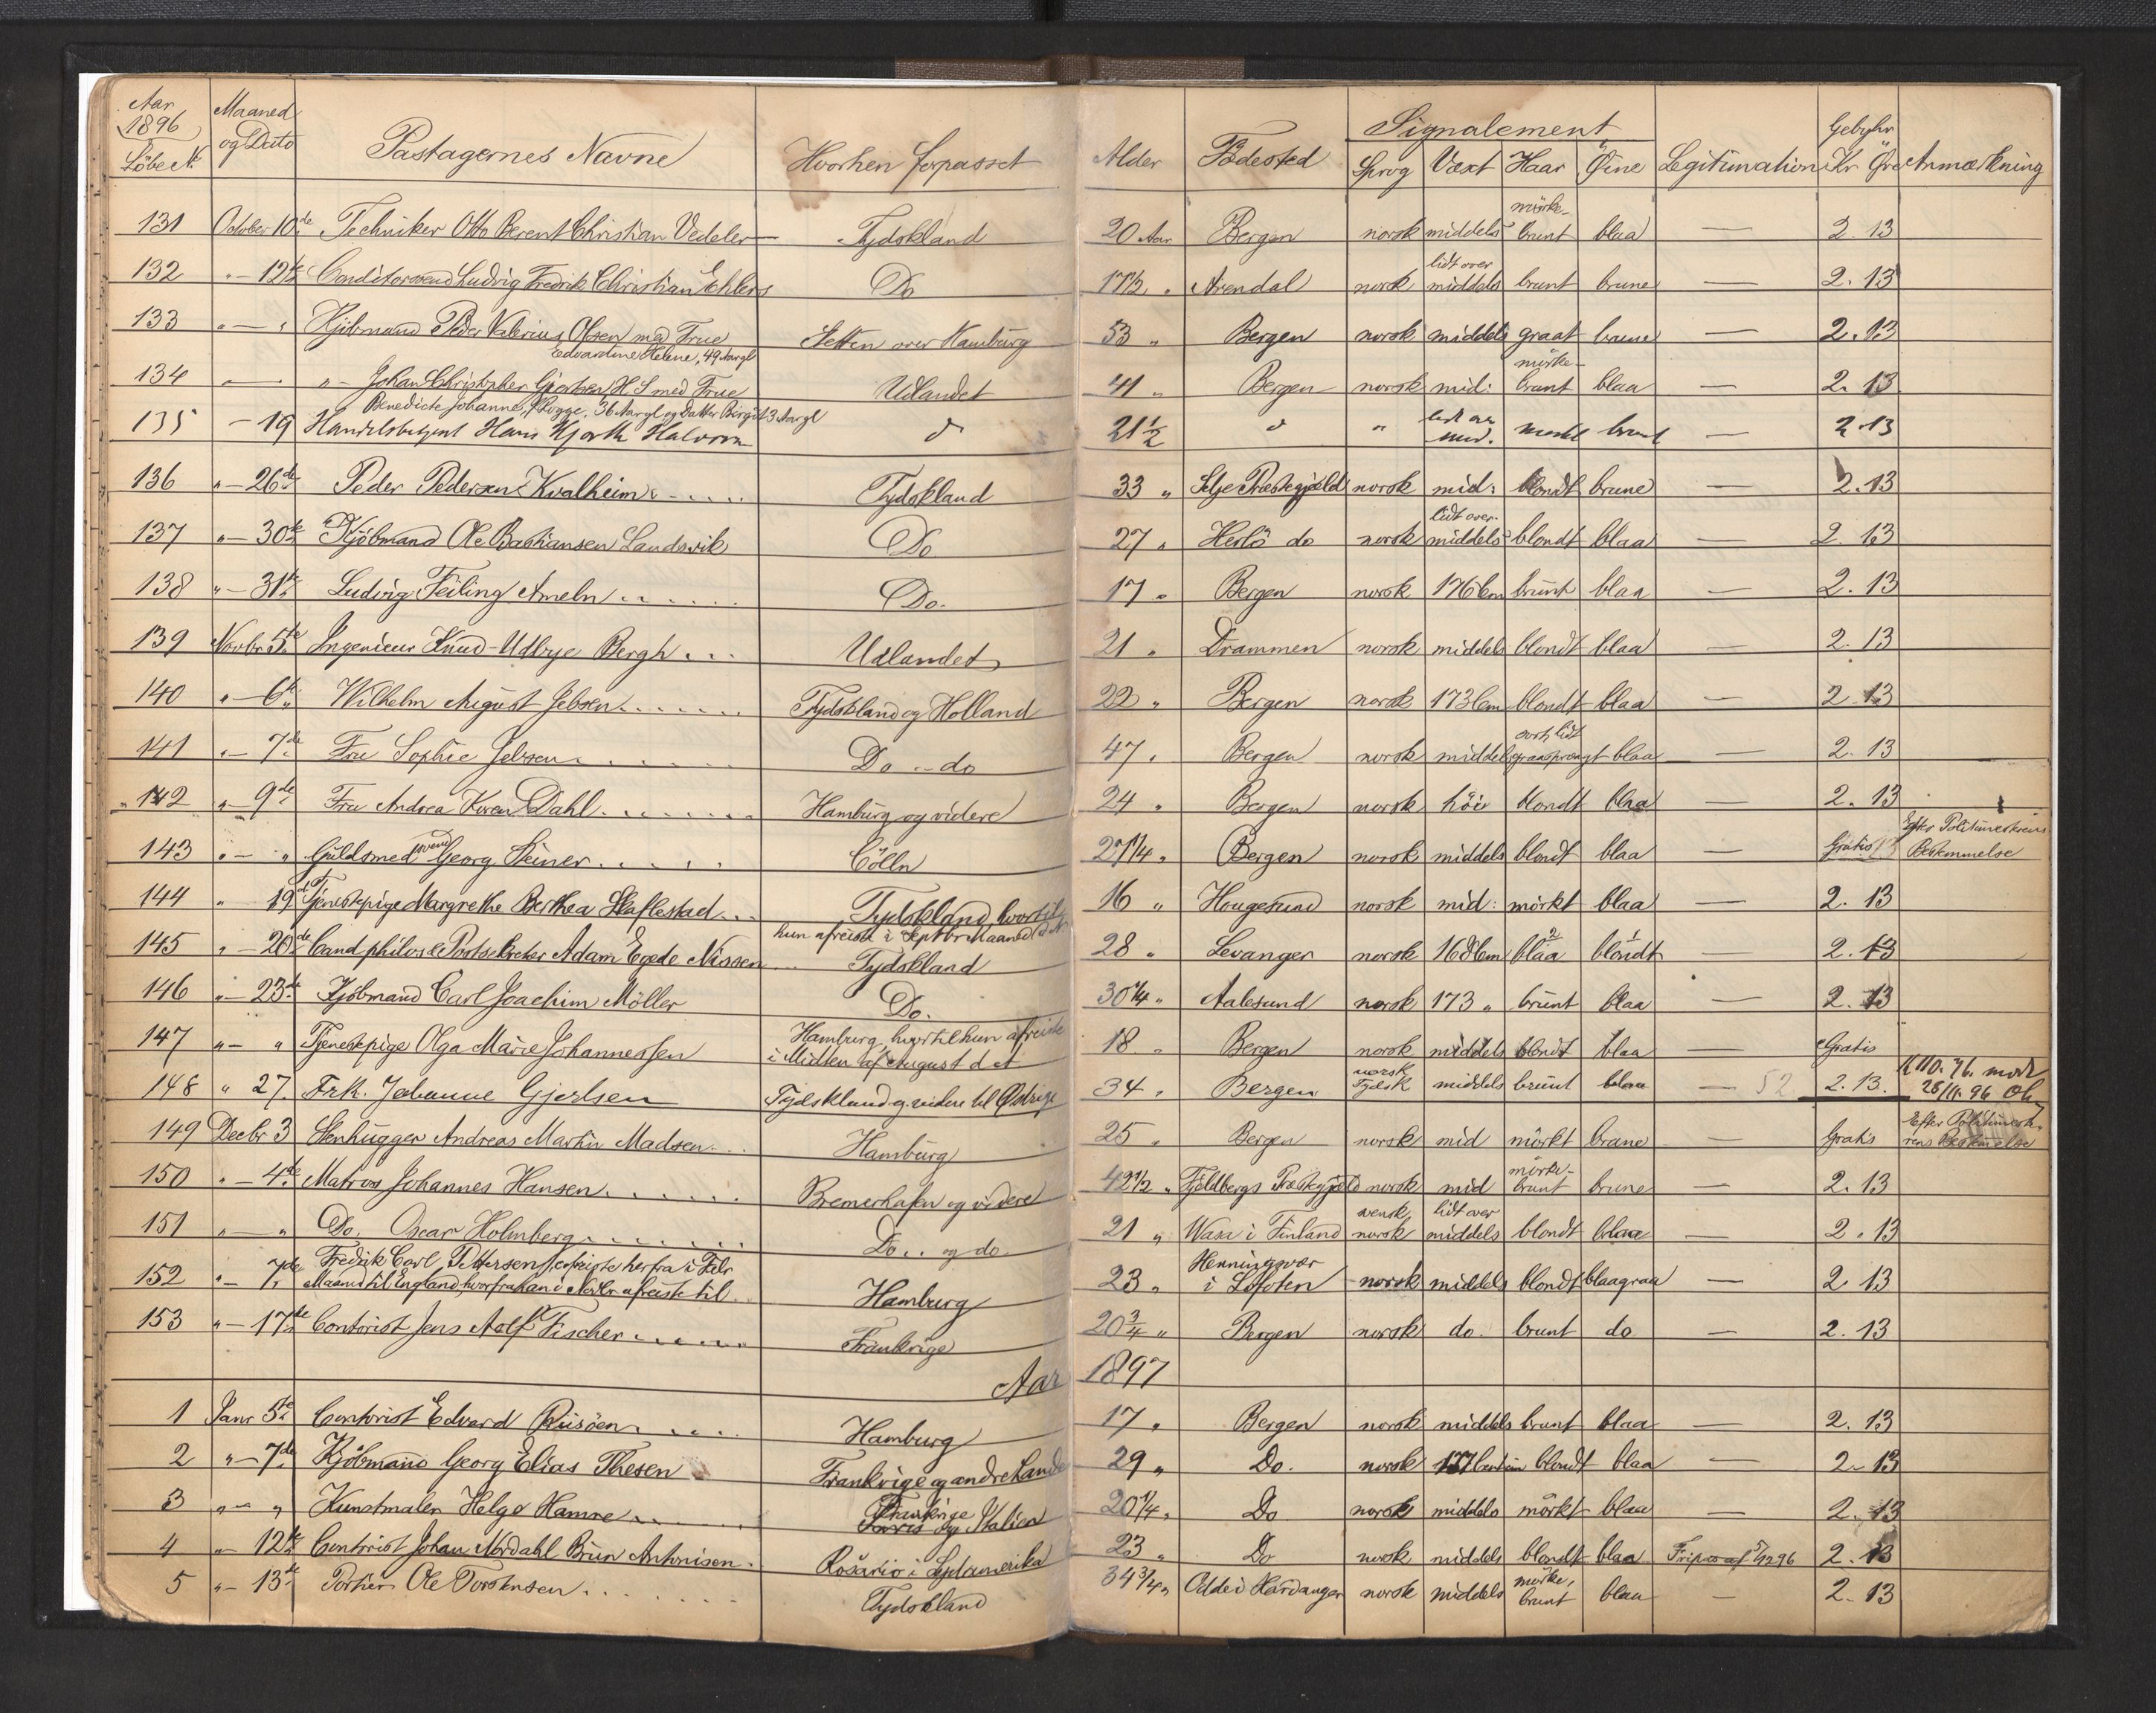 Aar 1896 Löbe No Maaned og Dato Passagernes Navne Hvorhen forpasset Alder Födested Signalement Sprog Væxt Haar Öine Legitimation Gebyhr Kr Öre Anmærkning
131 October 10de Techniker Otto Berent Christian Vedeler Tydskland 20 Aar Bergen norsk middels mörke-brunt blaa — 2.13
132 " — 12te Conditorsvend Ludvig Fredrik Christian Ehlers Do 17 1/2 " Arendal norsk lidt over middels brunt brune — 2.13
133 " — " Kjöbmand Peder Valerius Olsen med Frue Stettin over Hamburg 53 " Bergen norsk middels graat brune — 2.13
Edvardine Helene, 49 Aargl
134 " — " — Johan Christopher Gjertsen H. S med Frue Udlandet 41 " Bergen norsk mid: mörke-brunt blaa — 2.13
Benedicte Johanne, 36 Aargl og Datter Birgit 3 Aargl
135 — 19 Handelsbetjent Hans Hjorth Halvorsen do 21 1/2 do " lidt ov mid. mörkt brunt — 2.13
136 " — 26de Peder Pedersen Kvalheim Tydskland 33 " Selje Præstegjeld norsk mid: blondt brune — 2.13
137 " — 30te Kjöbmand Ole Bastiansen Landsvik Do 27 " Herlö do norsk lidt over middels blondt blaa 2.13
138 " — 31te Ludvig Feiling Ameln Do. 17 " Bergen norsk 176 Cm brunt blaa — 2.13
139 Novbr 5te Ingenieur Knud Udbye Bergh Udlandet 21 " Drammen norsk middels blondt blaa — 2.13
140 " — 6te Wilhelm August Jebsen Tydskland og Holland 22 " Bergen norsk 173 Cm blondt blaa — 2.13
141 " — 7de Fru Sophie Jebsen Do — do 47 " Bergen norsk middels sort lidt graasprængt blaa — 2.13
142 " — 9de Fru Andrea Koren Dahl Hamburg og videre 24 " Bergen norsk höi blondt blaa — 2.13
143 " — " Guldsmedsvend Georg Steiner Cölln 27 1/4 " Bergen norsk middels blondt blaa — Gratis Efter Politimesterens Bestemmelse
144 " 19d Tjenestepige Margrethe Berthea Skaflestad Tydskland, hvortil 16 " Hougesund norsk mid: mörkt blaa — 2.13
hun afreiste i Septbr Maaned d. A.
145 " — 20de Cand philos & Postsekretær Adam Egede Nissen Tydskland 28 " Levanger norsk 168 Cm blaa 2 blondt 1 — 2.13
146 " — 23de Kjöbmand Carl Joachim Möller Do. 30 1/4 " Aalesund norsk 173 " brunt blaa — 2.13
147 " — " Tjenestepige Olga Marie Johannessen Hamburg, hvortil hun afreiste i Midten af August d. A 18 " Bergen norsk middels blondt blaa — Gratis
148 " 27. Frk. Johanne Gjertsen Tydskland og videre til Østrige 34 " Bergen norsk Tydsk middels brunt blaa — 52 2.13. 28/11 96
149 Decbr 3 Stenhugger Andreas Martin Madsen Hamburg 25 " Bergen norsk mid mörkt brune — Gratis Efter Politimesterens Bestemmelse
150 " — 4de Matros Johannes Hansen Bremerhafen og videre 42 1/2 " Fjeldbergs Præstegjeld norsk mid mörke-brunt brune — 2.13
151 " — " Do. Oscar Holmberg Do. og do. 21 " Wasa i Finland svensk norsk lidt over middels blondt blaa — 2.13
152 " — 7de Fredrik Carl Pettersen, afreiste herfra i Febr Maaned til England, hvorfra han i Novbr afreiste til Hamburg 23 " Henningsvær i Lofoten norsk middels blondt blaagraa — 2 13
153 " — 17de Contorist Jens Adolf Fischer Frankrige 20 3/4 " Bergen norsk do. brunt do — 2.13
Aar 1897
1 Janr 5te Contorist Edvard Riisöen Hamburg 17 " Bergen norsk middels brunt blaa — 2.13
2 " — 7de Kjöbmand Georg Elias Thesen Frankrige og andre Lande 29 " Do. norsk 177 blondt blaa — 2.13
3 " — " Kunstmaler Helge Hamre Frankrige Paris og Italien 20 1/4 " Do norsk middels mörkt blaa 2.13
4 " — 12te Contorist Johan Nordahl Brun Antonisen Rosario i Sydamerika 23 " Do norsk middels blondt blaa Fripas af 5/12 96 2.13
5 " — 13de Portier Ole Torstensen Tydskland 34 3/4 " Odde i Hardanger norsk middels mörke, brunt blaa — 2.13